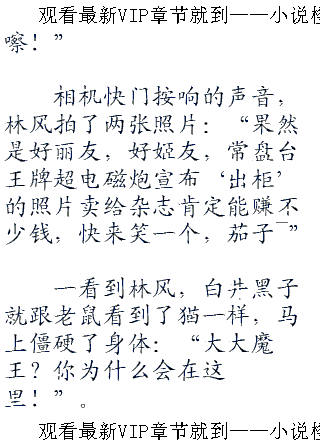 观看最新VIP章节就到——小说楼
嚓！”
相机快门按响的声音，
林风拍了两张照片：“果然
是好丽友，好姬友，常盘台
王牌超电磁炮宣布‘出柜’
的照片卖给杂志肯定能赚不
少钱，快来笑一个，茄子~”
一看到林风，白井黑子
就跟老鼠看到了猫一样，马
上僵硬了身体：“大大魔
王？你为什么会在这
里！”。
观看最新VIP章节就到——小说楼